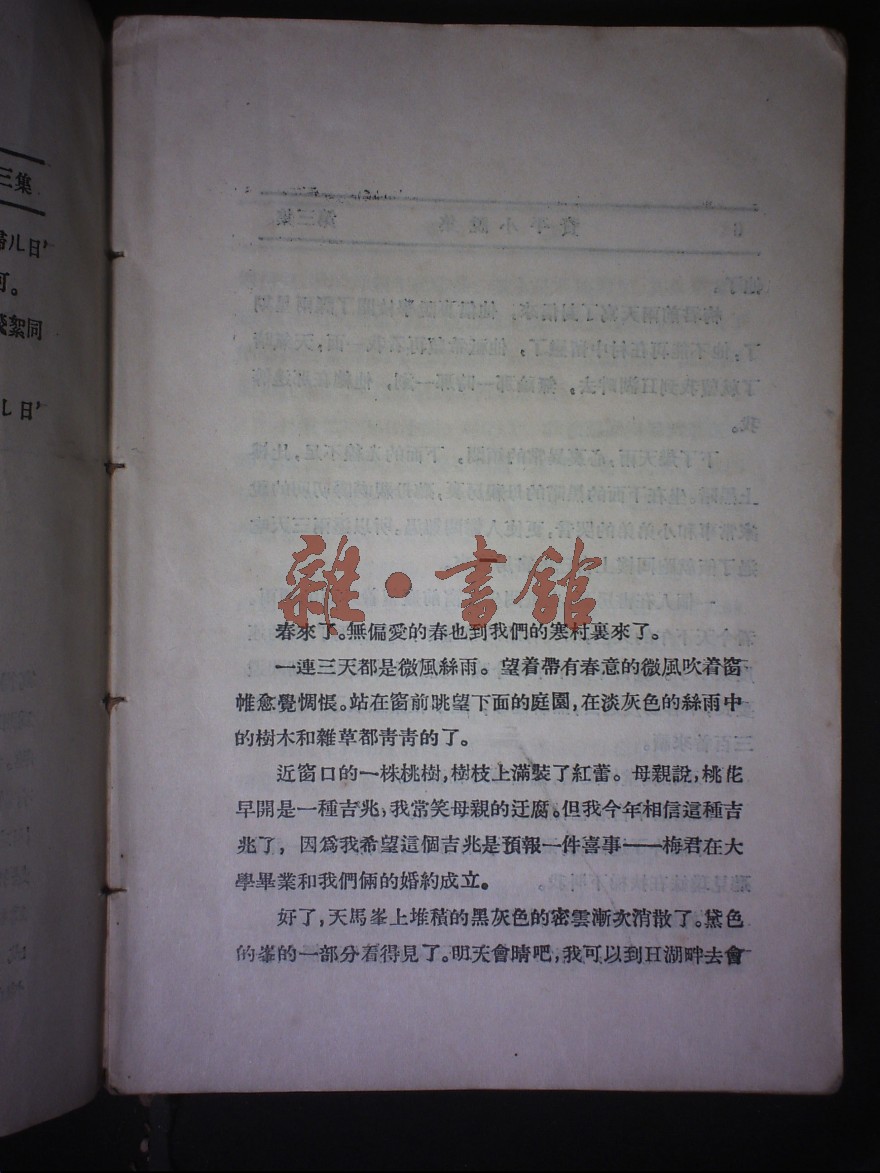 三集
雜·書舘
春來了。無偏愛的春也到我們的寒村裏來了。
一連三天都是微風絲雨。望着帶有春意的微風吹着窗
帷愈覺惆悵。站在窗前眺望下面的庭園，在淡灰色的絲雨中
的樹木和雜草都靑靑的了。
近窗口的一株桃樹，樹枝上滿裝了紅蕾。母親說，桃花
早開是一種吉兆，我常笑母親的迂腐。但我今年相信這種吉
兆了，因爲我希望這個吉兆是預報一件喜事——梅君在大
學畢業和我們倆的婚約成立。
好了，天馬峯上堆積的黑灰色的密雲漸次消散了。黛色
的峯的一部分看得見了。明天會晴吧，我可以到日湖畔去會